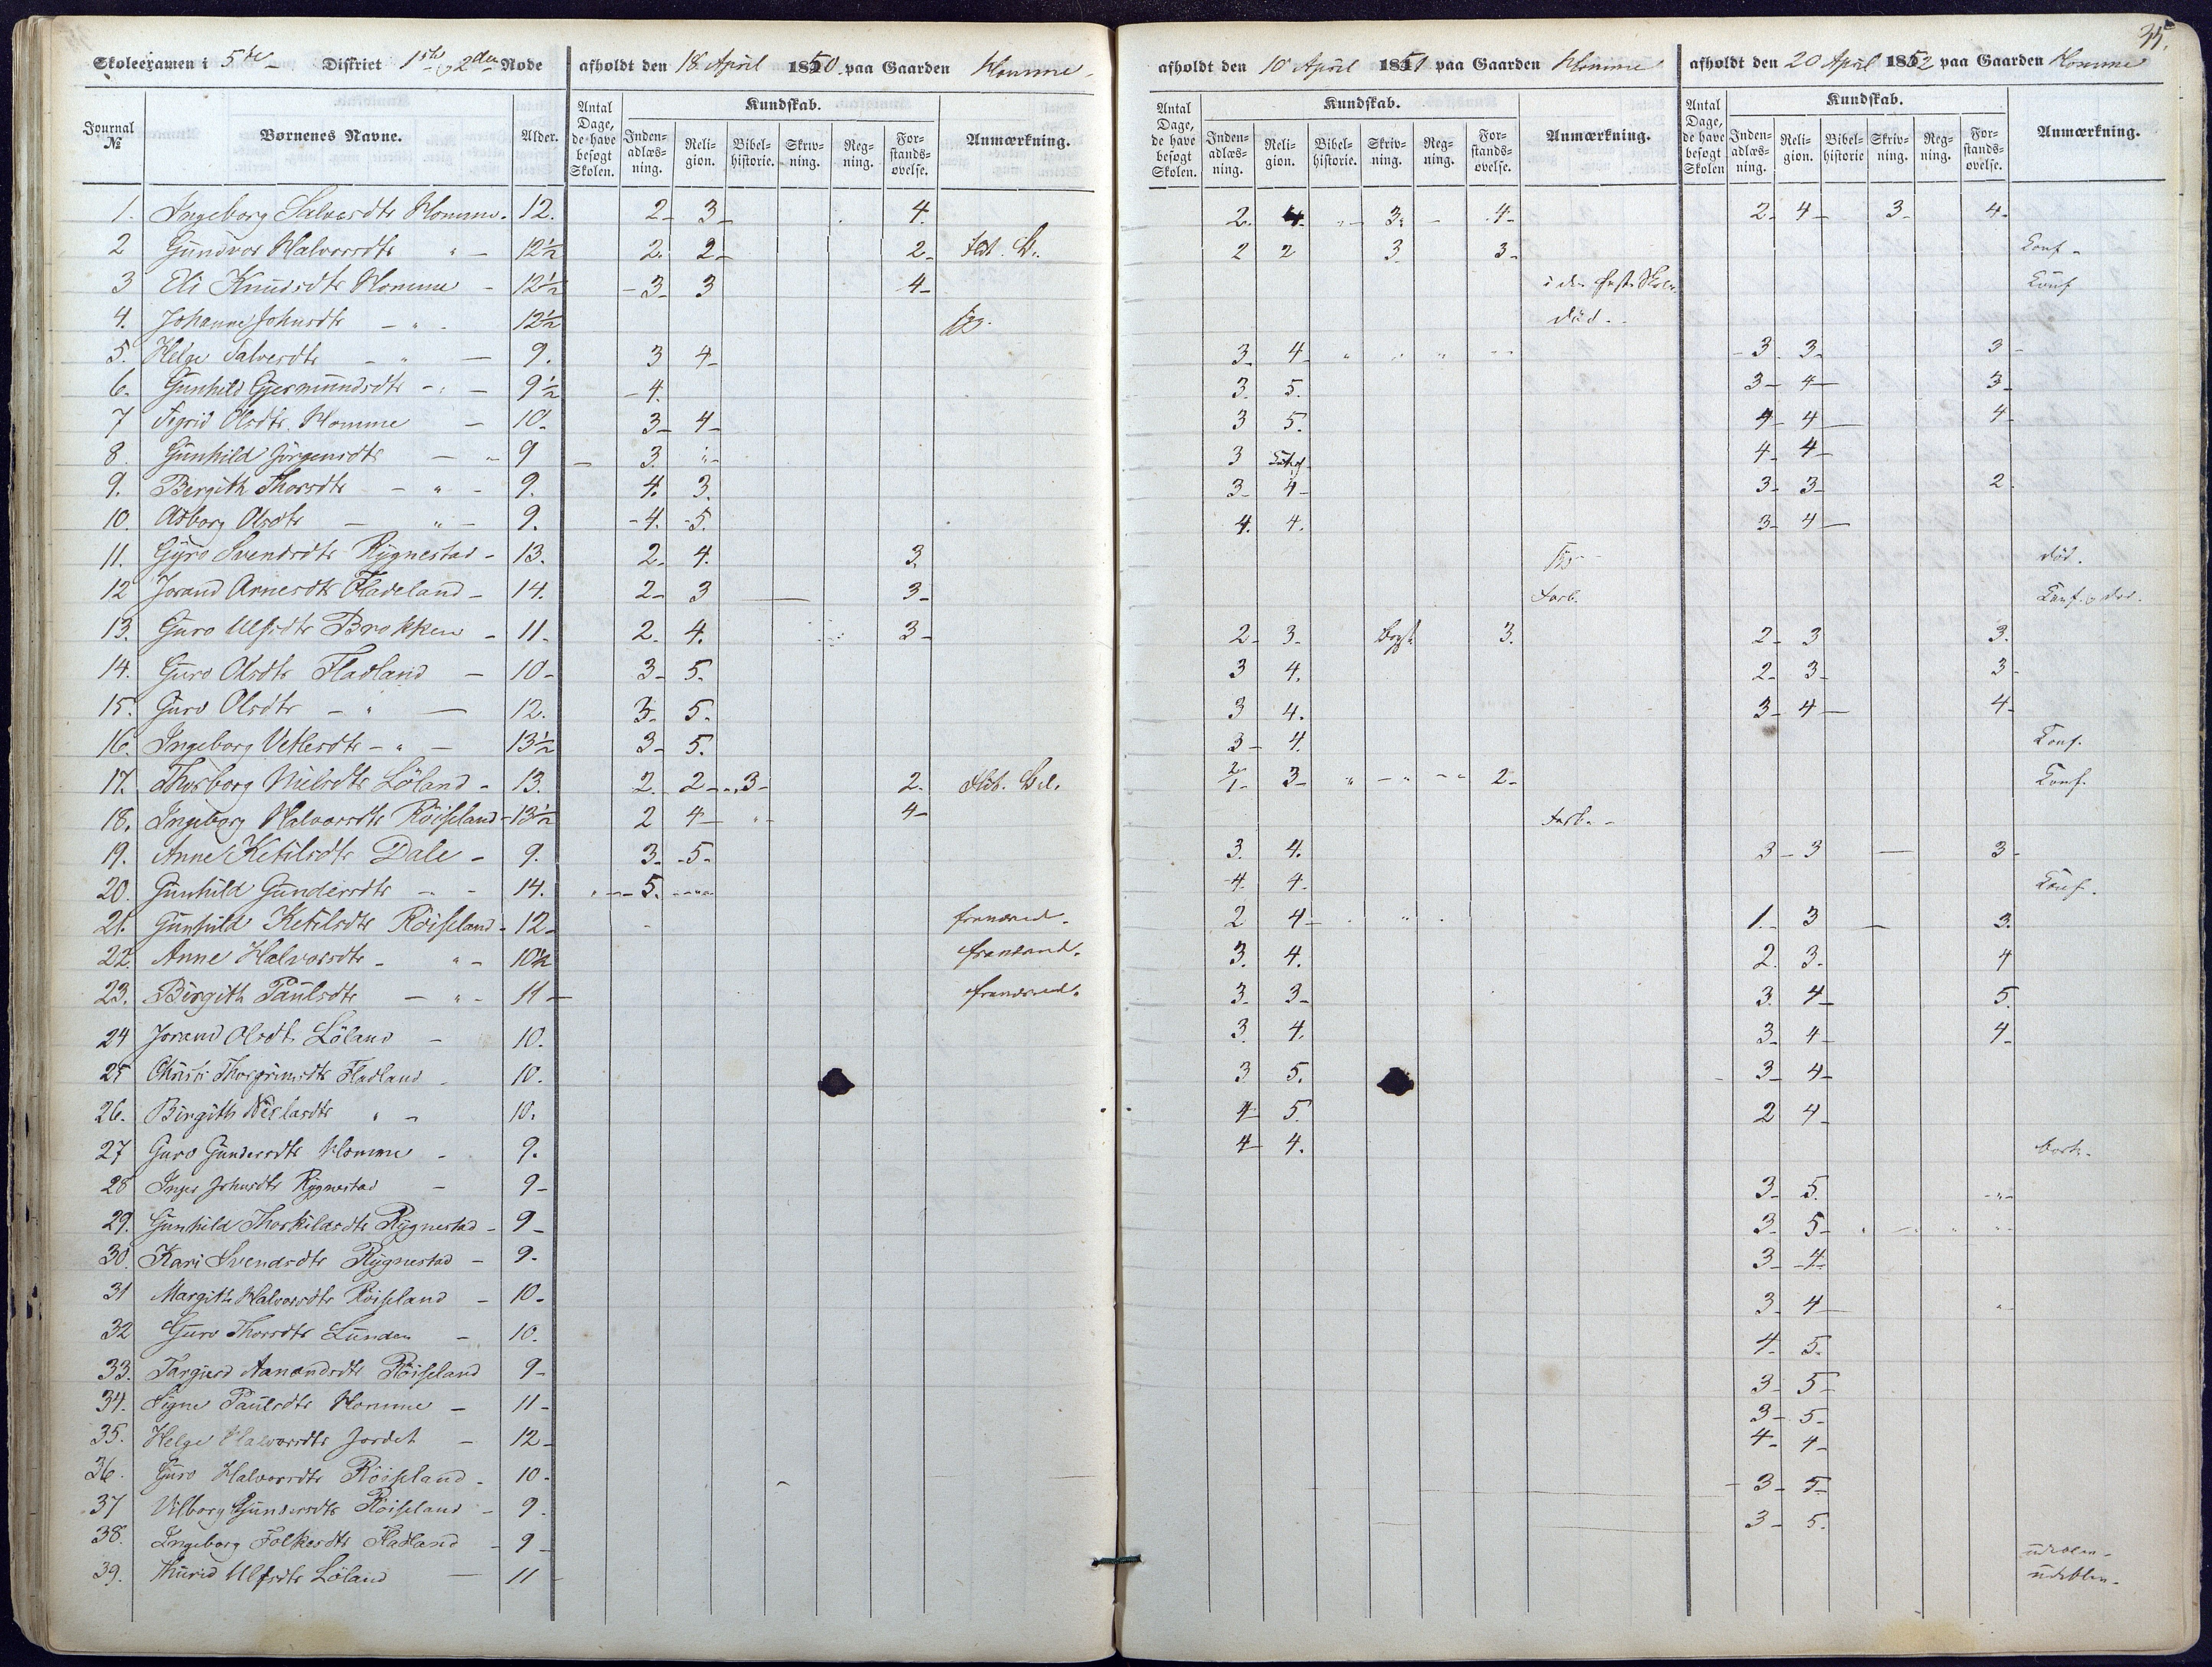 35.
Skoleexamen i 5te Distrikt 1ste & 2den Rode afholdt den 18 April 1850 paa Gaarden Homme
afholdt den 10 April 1851 paa Gaarden Homme
afholdt den 20 April 1852 paa Gaarden Homme
Journal No Børnenes Navne. Alder. Antal Dage, de have besøgt Skolen. Kundskab. Inden-adlæs-ning. Reli-gion. Bibel-historie. Skriv-ning. Reg-ning. For-stands-øvelse. Anmærkning.
Antal Dage, de have besøgt Skolen. Kundskab. Inden-adlæs-ning. Reli-gion. Bibel-historie. Skriv-ning. Reg-ning. For-stands-øvelse. Anmærkning.
Antal Dage, de have besøgt Skolen Kundskab. Inden-adlæs-ning. Reli-gion. Bibel-historie Skriv-ning. Reg-ning. For-stands-øvelse. Anmærkning.
1. Ingeborg Salvesdtr Homme. 12. 2 3 4. 2. 4. " 3. 4 2 4 3 4
2 Gundvor Halvorsdtr " 12½ 2. 2 2 2 2 3 3 Conf
3 Eli Knudsdtr Homme 12½ 3 3 4 i den faste Skole Conf
4. Johanne Johnsdtr " 12½ død.
5. Helge Salvesdtr " 9. 3 4 3 4 " " " 3 3 3
6. Gunhild Gjermundsdtr " 9½ 4. 3. 5. 3 4 3
7 Sigrid Olsdtr. Homme 10. 3 4 3 5. 4 4 4
8. Gunhild Jørgensdtr " 9 3. " 3 4 4
9. Bergith Thorsdtr " 9. 4. 3. 3 4 3 3 2.
10. Asborg Olsdtr " 9. 4. 5. 4. 4. 3 4
11. Gyro Svendsdtr Rygnestad 13. 2. 4. 3. død.
12 Jorand Arnesdtr Fladeland 14. 2 3 3 Forb. Conf. & død.
13. Guro Ulfsdtr Brokken 11. 2. 4. 3 2 3 3. 2 3 3.
14. Guro Olsdtr Fladland 10 3 5. 3 4. 2 3 3
15. Guro Olsdtr " 12. 3. 5. 3 4. 3 4 4
16. Ingeborg Vetlesdtr " 13½ 3 5. 3 4. Conf.
17. Thorborg Nielsdtr Løland 13. 2. 2 3 2. 2/1 3 " " " 2 Conf.
18. Ingeborg Halvorsdtr Røiseland 13½ 2 4 " 4 Forb.
19. Anne Ketilsdtr Dale 9. 3. 5. 3. 4. 3 3 3
20. Gunhild Gundersdtr 14. 5. 4. 4. Conf.
21. Gunhild Ketilsdtr Røiseland 12 fraværend. 2 4 " 1. 3 3.
22. Anne Halvorsdtr " 10½ fraværend. 3. 4. 2. 3. 4
23. Birgith Paulsdtr " 11 fraværend. 3 3 3. 4 5.
24 Jorand Olsdtr Løland 10. 3 4. 3 4 4
25 Christi Thorgrimsdtr Fladland 10. 3 5. 3 4
26. Birgith Nielsdtr " 10. 4 5. 2 4
27 Guro Gundersdtr Homme 9. 4 4. bort.
28 Inger Johnsdtr Rygnestad 9 3 5. "
29. Gunhild Thorkildsdtr Rygnestad 9 3. 5 " " "
30. Kari Svendsdtr Rygnestad 9. 3 4
31 Margith Halvorsdtr Røiseland 10. 3 4 "
32 Guro Thorsdtr Lunden 10. 4 5.
33. Targjerd Aanondsdtr Røiseland 9 3 5
34. Signe Paulsdtr Homme 11 3 5
35. Helge Halvorsdtr Jordet 12 4 4
36. Guro Halvorsdtr Røiseland 10 3 5
37 Vilborg Gundersdtr Røiseland 9 3 5.
38. Ingeborg Folkesdtr Fladland 9 udebleven
39. Thurid Ulfsdtr Løland 11 udebleven